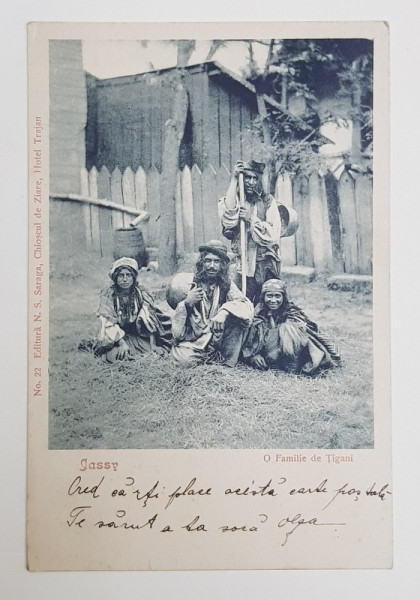 No. 22 Editură N. S. Saraga, Chioșcul de Ziare, Hotel Trajan
Jassy
O Familie de Țigani
Cred că ți place acestă carte poștală
Te sărut a ta soră Olga